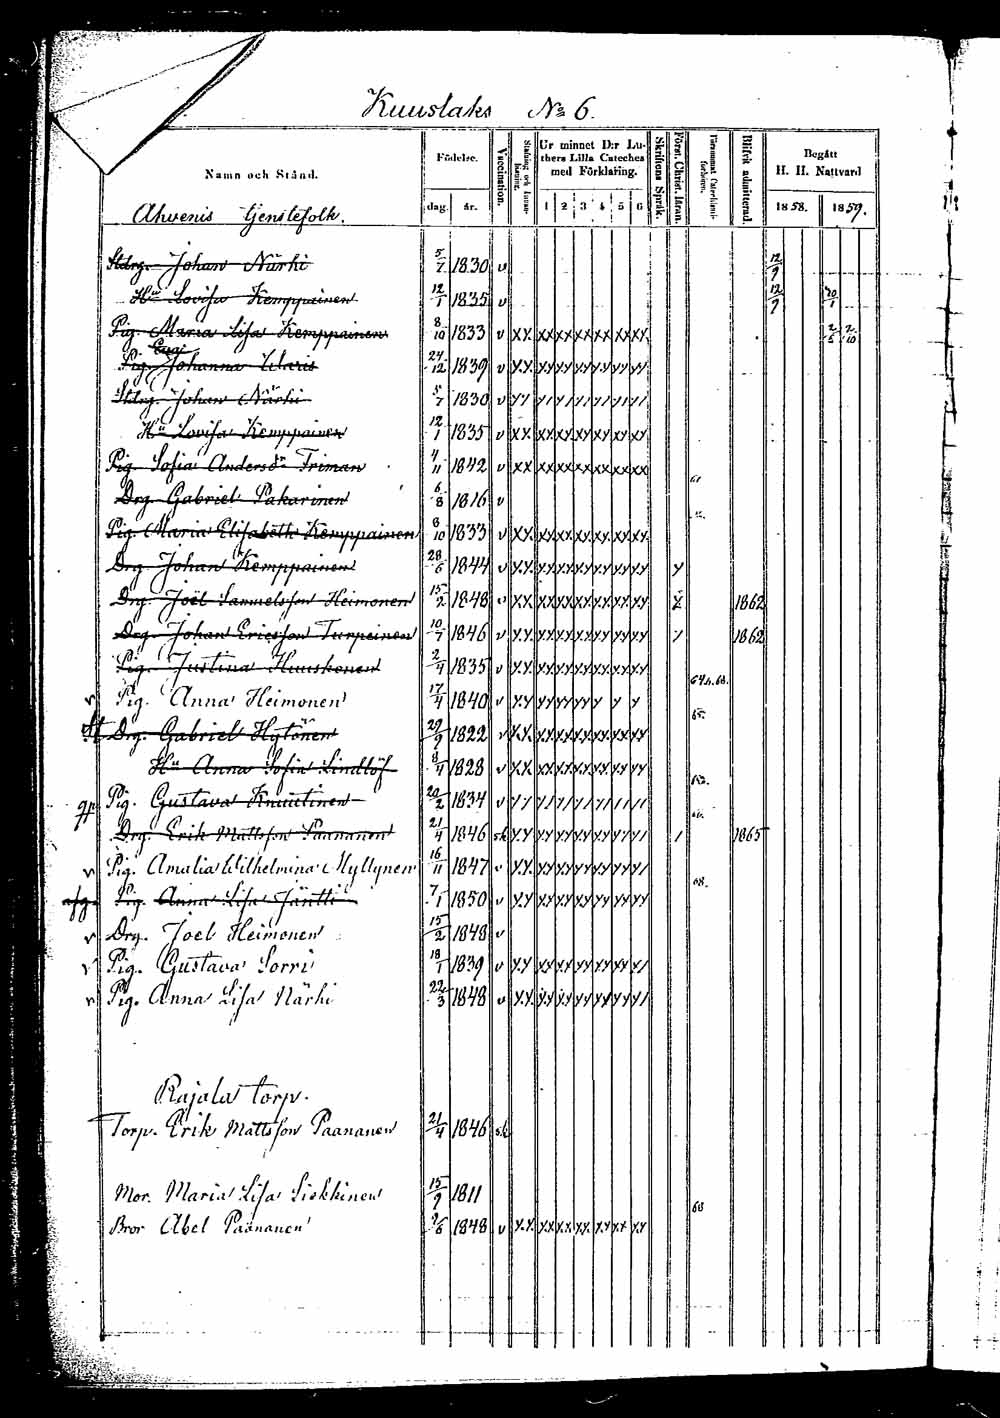 Kuuslaks No 6.
Namn och Stånd.
Födelse.
dag. år.
Vaccination.
Ur minnet D:r Lu-
thers Lilla Cateches
med Förklaring.
1 2 3 4 5 6
Skriftens Språk.
Först. Christ. läran.
Blifvit admitterad.
Begått
H. H. Nattvard
1858. 1859.
Ahvenis tjenstefolk.
Johan Närhi 5/7 1830 v 12/9
Hu Lovisa Kemppainen 12/1 1835 v 12/9
Pig. Maria Lisa Kemppainen 8/10 1833 v xx xx xx xx xx xx xx
Pig. Johanna 24/12 1839 v xx xx xx xx xx xx xx
Johan Närhi 5/7 1830 v
Hu Lovisa Kemppainen 12/1 1835 v xx xx xx xx xx xx xx
Pig. Sofia Andersdr Friman 4/11 1842 v xx xx xx xx xx xx xx
Drg. Gabriel Pakarinen 6/8 1816 v
Pig. Maria Elisabeth Kemppainen 8/10 1833 v xx xx xx xx xx xx xx
Drg. Johan Kemppainen 28/6 1844 v xx xx xx xx xx xx xx
Drg. Joël Samuelsson Heimonen 15/2 1848 v xx xx xx xx xx xx xx 1862
Drg. Johan Ericsson Turpeinen 10/7 1846 v xx xx xx xx xx xx xx 1862
Pig. Justina Huuskonen 2/4 1835 v xx xx xx xx xx xx xx
v Pig. Anna Heimonen 17/4 1840 v
Drg. Gabriel Hytönen 29/9 1822 v xx xx xx xx xx xx xx
Hu Anna Sofia Lindlöf 8/4 1828 v xx xx xx xx xx xx xx
Pig. Gustava Knuutinen 20/2 1834 v
Drg. Erik Mattsson Paananen 21/4 1846 s.k. 1865
v Pig. Amalia Wilhelmina Myllynen 16/11 1847 v
Pig. Anna Lisa Jäntti 7/1 1850 v 68.
v Drg. Joel Heimonen 15/2 1848 v
v Pig. Gustava Sorri 18/1 1839 v
v Pig. Anna Lisa Närhi 22/3 1848 v
Rajala torp.
Torp. Erik Mattsson Paananen 21/4 1846 s.k.
Mor. Maria Lisa Siekkinen 15/9 1811
Bror Abel Paananen 1848 v xx xx xx xx xx xx xx